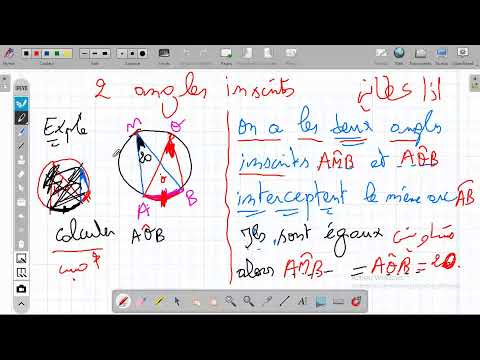 2 angles inscrits اذا كانت
Exple
M Q
20
A B
calculer AQ̂B
احسب
on a les deux angles
inscrits AM̂B et AQ̂B
interceptent le même arc AB
Ils sont égaux متساويتين
alors AM̂B = AQ̂B = 20.